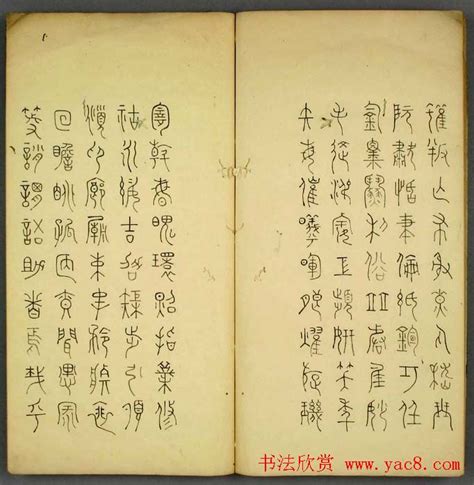 獲叛亡布射遼丸嵇琴
阮嘯恬筆倫紙鈞巧任
釣釋紛利俗並皆佳妙
毛施淑姿工顰妍笑年
矢每催曦暉朗曜璇璣
懸斡晦魄環照指薪修
祜永綏吉劭矩步引領
俯仰廊廟束帶矜莊徘
徊瞻眺孤陋寡聞愚蒙
等誚謂語助者焉哉乎
书法欣赏 www.yac8.com